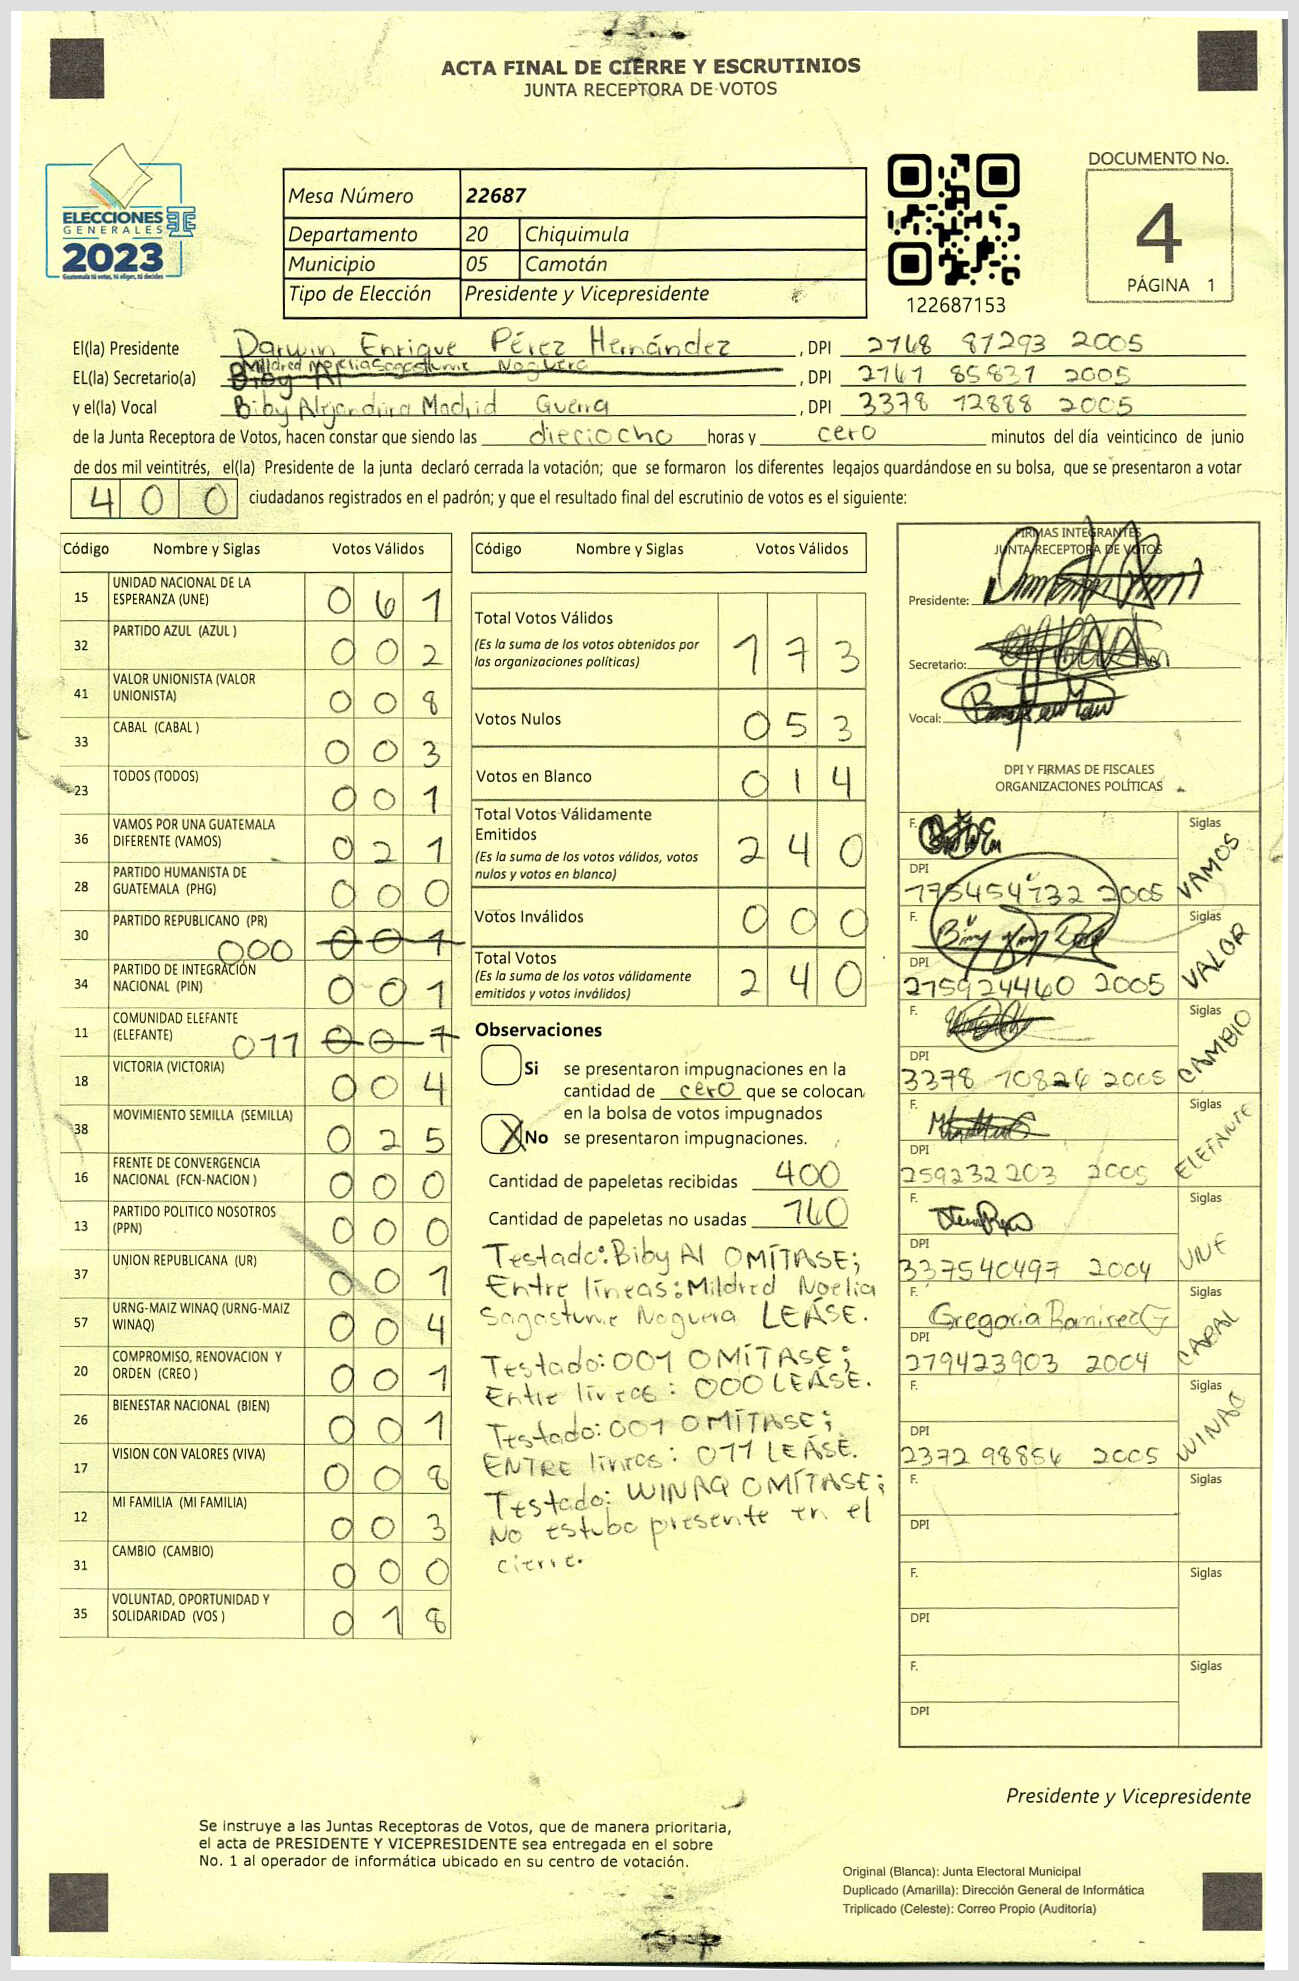 ACTA FINAL DE CIERRE Y ESCRUTINIOS
JUNTA RECEPTORA DE VOTOS
ELECCIONES
GENERALES
2023
Guatemala tú votas, tú eliges, tú decides
Mesa Número 22687
Departamento 20 Chiquimula
Municipio 05 Camotán
Tipo de Elección Presidente y Vicepresidente
122687153
DOCUMENTO No.
4
PÁGINA 1
El(la) Presidente Darwin Enrique Pérez Hernández , DPI 2768 87293 2005
Mildred Noelia Sagastume Noguera
EL(la) Secretario(a) Biby Al , DPI 2767 85837 2005
y el(la) Vocal Biby Alejandra Madrid Guerra , DPI 3378 72888 2005
de la Junta Receptora de Votos, hacen constar que siendo las dieciocho horas y cero minutos del día veinticinco de junio
de dos mil veintitrés, el(la) Presidente de la junta declaró cerrada la votación; que se formaron los diferentes legajos guardándose en su bolsa, que se presentaron a votar
400 ciudadanos registrados en el padrón; y que el resultado final del escrutinio de votos es el siguiente:
Código Nombre y Siglas Votos Válidos
15 UNIDAD NACIONAL DE LA ESPERANZA (UNE) 061
32 PARTIDO AZUL (AZUL ) 002
41 VALOR UNIONISTA (VALOR UNIONISTA) 008
33 CABAL (CABAL ) 003
23 TODOS (TODOS) 001
36 VAMOS POR UNA GUATEMALA DIFERENTE (VAMOS) 021
28 PARTIDO HUMANISTA DE GUATEMALA (PHG) 000
30 PARTIDO REPUBLICANO (PR) 000 001
34 PARTIDO DE INTEGRACIÓN NACIONAL (PIN) 001
11 COMUNIDAD ELEFANTE (ELEFANTE) 011 007
18 VICTORIA (VICTORIA) 004
38 MOVIMIENTO SEMILLA (SEMILLA) 025
16 FRENTE DE CONVERGENCIA NACIONAL (FCN-NACION ) 000
13 PARTIDO POLITICO NOSOTROS (PPN) 000
37 UNION REPUBLICANA (UR) 001
57 URNG-MAIZ WINAQ (URNG-MAIZ WINAQ) 004
20 COMPROMISO, RENOVACION Y ORDEN (CREO ) 001
26 BIENESTAR NACIONAL (BIEN) 001
17 VISION CON VALORES (VIVA) 008
12 MI FAMILIA (MI FAMILIA) 003
31 CAMBIO (CAMBIO) 000
35 VOLUNTAD, OPORTUNIDAD Y SOLIDARIDAD (VOS ) 018
Código Nombre y Siglas Votos Válidos
Total Votos Válidos 173
(Es la suma de los votos obtenidos por
las organizaciones políticas)
Votos Nulos 053
Votos en Blanco 014
Total Votos Válidamente
Emitidos 240
(Es la suma de los votos válidos, votos
nulos y votos en blanco)
Votos Inválidos 000
Total Votos 240
(Es la suma de los votos válidamente
emitidos y votos inválidos)
Observaciones
Si se presentaron impugnaciones en la
cantidad de cero que se colocan
en la bolsa de votos impugnados
X No se presentaron impugnaciones.
Cantidad de papeletas recibidas 400
Cantidad de papeletas no usadas 160
Testado: Biby Al OMÍTASE;
Entre líneas: Mildred Noelia
Sagastume Noguera LEÁSE.
Testado: 001 OMÍTASE;
Entre líneas: 000 LEÁSE.
Testado: 007 OMÍTASE;
ENTRE líneas: 011 LEÁSE.
Testado: WINAQ OMÍTASE;
No estubo presente en el
cierre.
FIRMAS INTEGRANTES
JUNTA RECEPTORA DE VOTOS
Presidente:
Secretario:
Vocal:
DPI Y FIRMAS DE FISCALES
ORGANIZACIONES POLÍTICAS
F. Siglas VAMOS
DPI 775454732 2005
F. Siglas VALOR
DPI 275924460 2005
F. Siglas CAMBIO
DPI 3378 70824 2005
F. Siglas ELEFANTE
DPI 259232203 2005
F. Siglas UNE
DPI 337540497 2004
F. Gregoria Ramirez G Siglas CABAL
DPI 279423903 2004
F. Siglas WINAQ
DPI 2372 98856 2005
F. Siglas
DPI
F. Siglas
DPI
F. Siglas
DPI
Presidente y Vicepresidente
Se instruye a las Juntas Receptoras de Votos, que de manera prioritaria,
el acta de PRESIDENTE Y VICEPRESIDENTE sea entregada en el sobre
No. 1 al operador de informática ubicado en su centro de votación.
Original (Blanca): Junta Electoral Municipal
Duplicado (Amarilla): Dirección General de Informática
Triplicado (Celeste): Correo Propio (Auditoría)